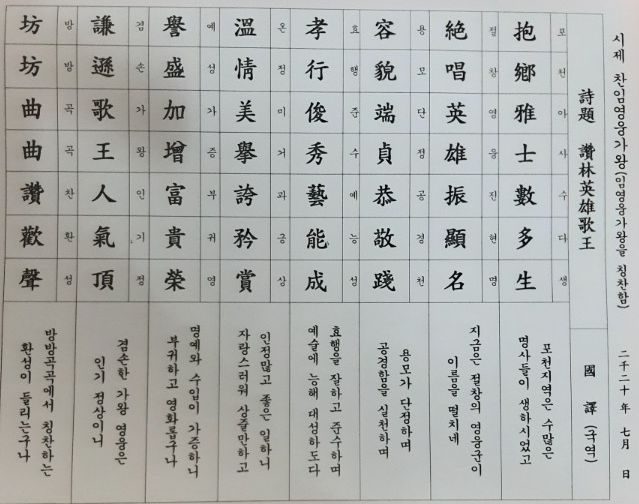 시제 찬임영웅가왕(임영웅가왕을 칭찬함) 二千二十年 七月 日
詩題 讚林英雄歌王
國譯(국역)
포천아사수다생
抱鄕雅士數多生
포천지역은 수많은
명사들이 생하시었고
절창영웅진현명
絶唱英雄振顯名
지금은 절창의 영웅군이
이름을 떨치네
용모단정공경천
容貌端貞恭敬踐
용모가 단정하며
공경함을 실천하며
효행준수예능성
孝行俊秀藝能成
효행을 잘하고 준수하며
예술에 능해 대성하도다
온정미거과긍상
溫情美擧誇矜賞
인정많고 좋은 일하니
자랑스러워 상줄만하고
예성가증부귀영
譽盛加增富貴榮
명예와 수입이 가증하니
부귀하고 영화롭구나
겸손가왕인기정
謙遜歌王人氣頂
겸손한 가왕 영웅은
인기 정상이니
방방곡곡찬환성
坊坊曲曲讚歡聲
방방곡곡에서 칭찬하는
환성이 들리는구나